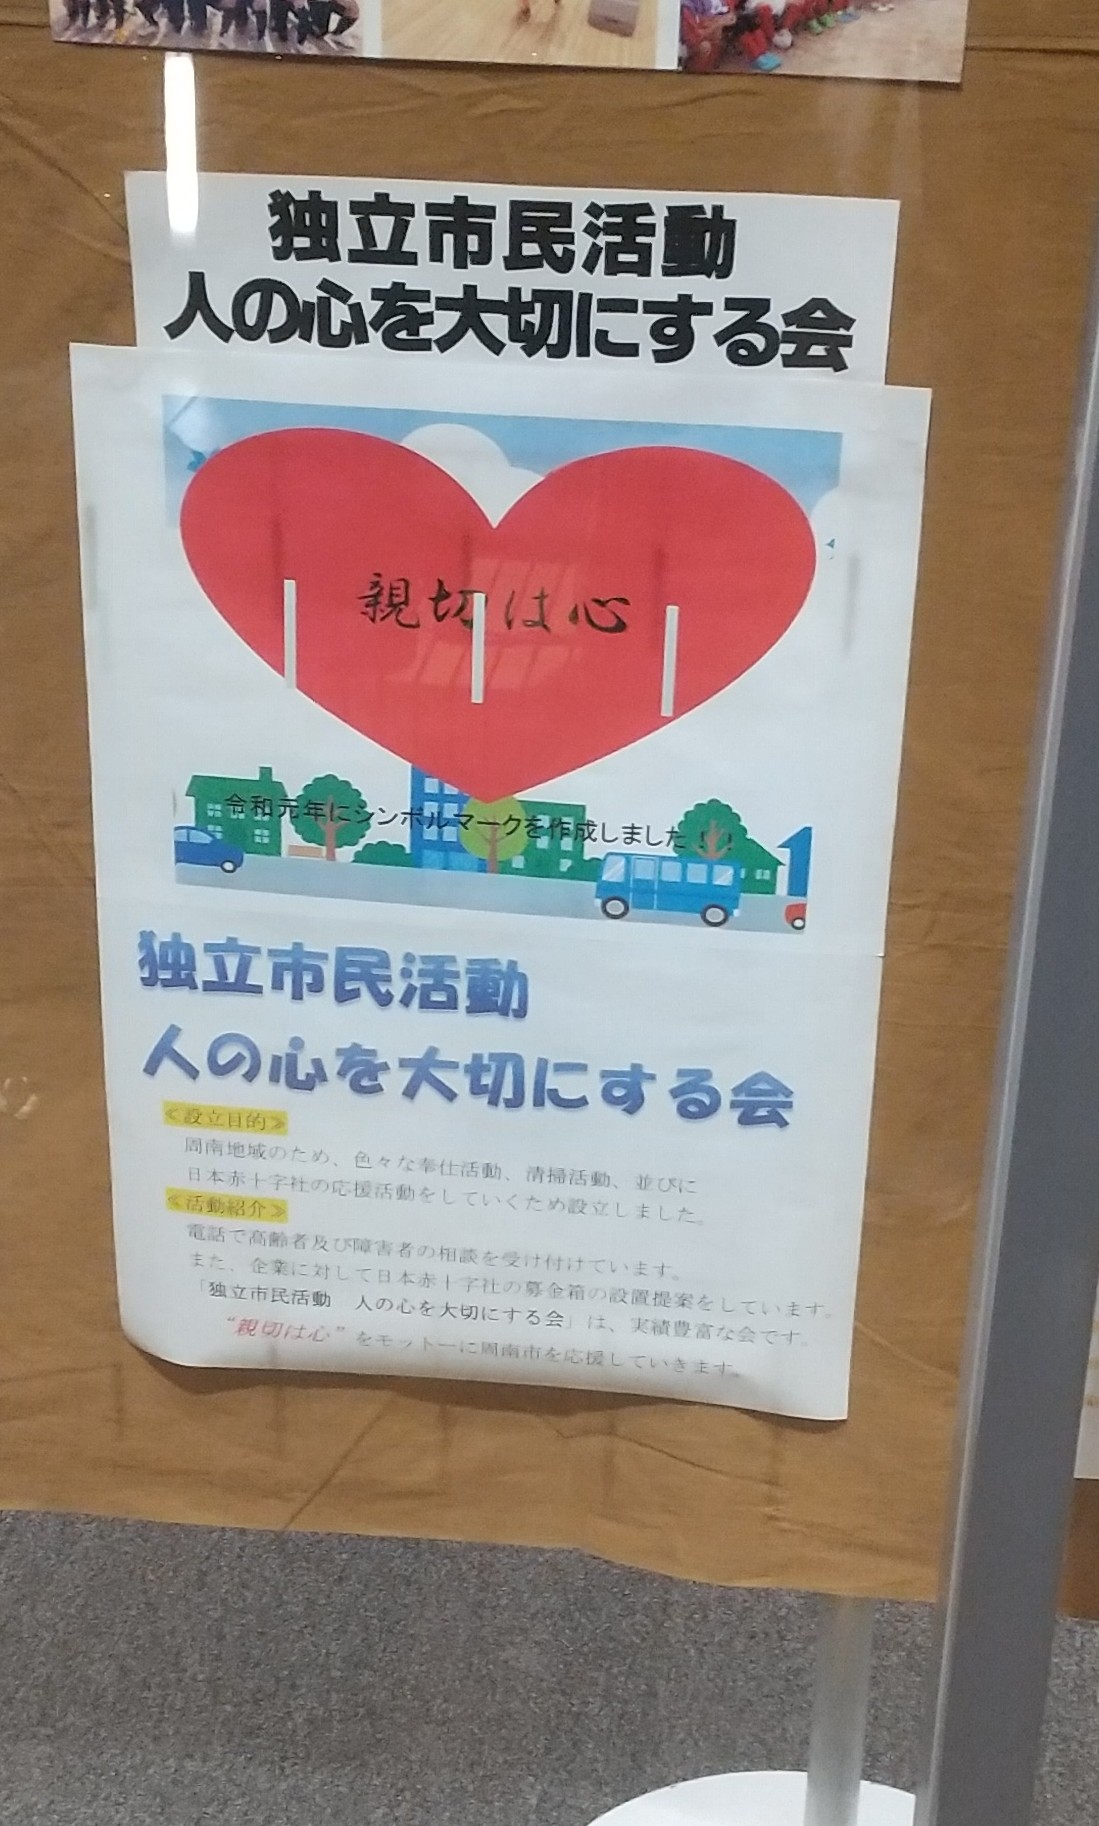 独立市民活動
人の心を大切にする会
親切は心
令和元年にシンボルマークを作成しました！！
独立市民活動
人の心を大切にする会
≪設立目的≫
周南地域のため、色々な奉仕活動、清掃活動、並びに
日本赤十字社の応援活動をしていくため設立しました。
≪活動紹介≫
電話で高齢者及び障害者の相談を受け付けています。
また、企業に対して日本赤十字社の募金箱の設置提案をしています。
「独立市民活動　人の心を大切にする会」は、実績豊富な会です。
“親切は心”をモットーに周南市を応援していきます。